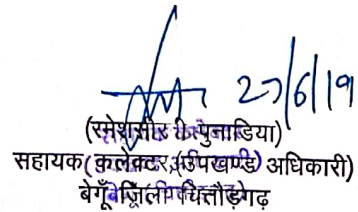 27/6/19
(रमेशसीर पुनाडिया)
सहायक कलेक्टर (उपखण्ड) अधिकारी)
बेगूँ जिला चित्तौड़गढ़